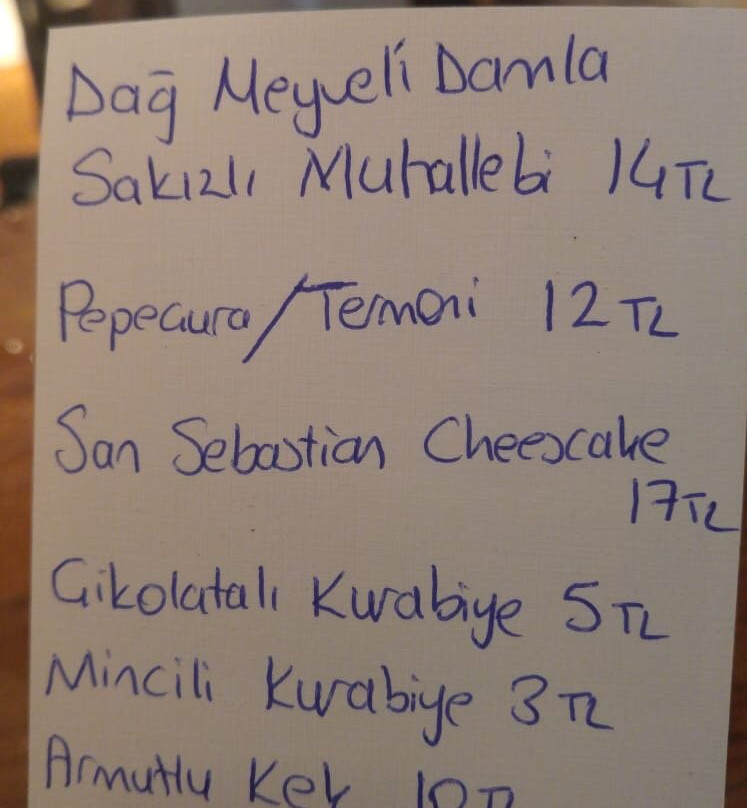 Dağ Meyveli Damla
Sakızlı Muhallebi 14 TL
Pepeçura/Temoni 12 TL
San Sebastian Cheescake
17 TL
Çikolatalı Kurabiye 5 TL
Mincili Kurabiye 3 TL
Armutlu Kek 10 TL